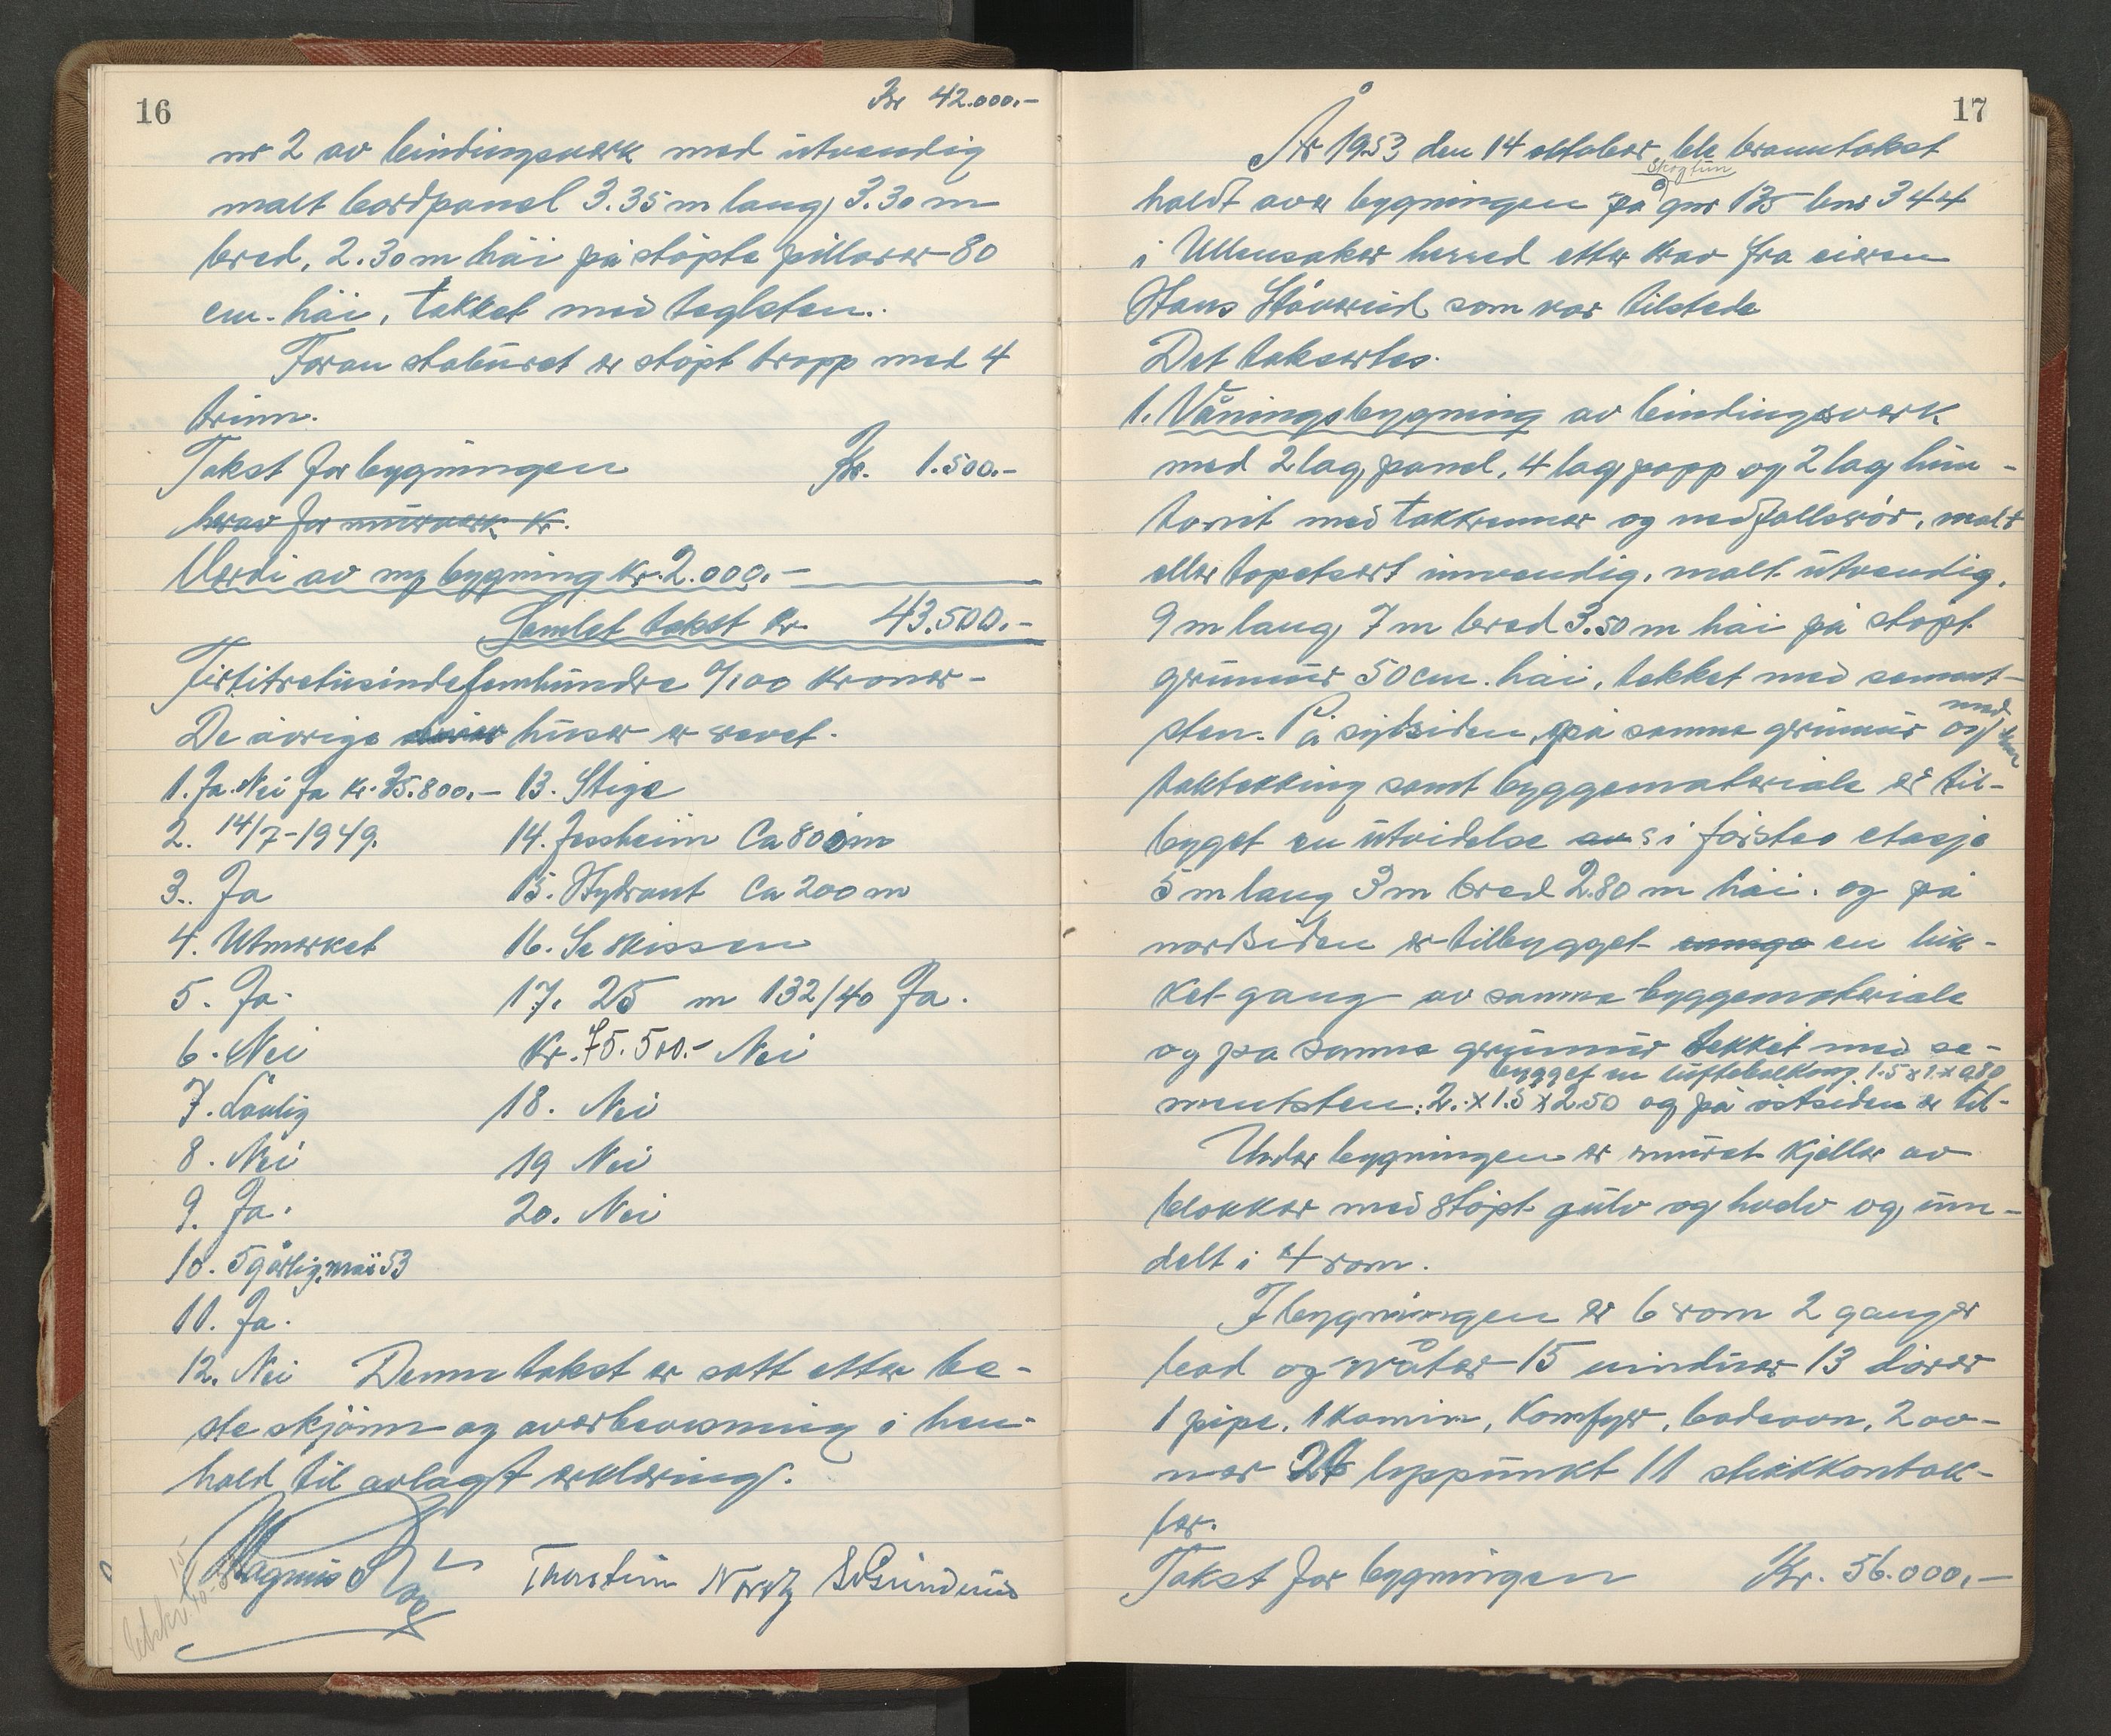 16
Kr 42.000.-
nr 2 av bindingsverk med utvendig
malt bordpanel 3.35 m lang, 3.30 m
bred, 2.30 m høi på støpte pillarer 80
cm. høi, tekket med teglsten.
Foran staburet er støpt trapp med 4
trinn.
Takst for bygningen Kr. 1.500.-
herav for murverk kr.
Verdi av ny bygning kr. 2.000.-
Samlet takst kr. 43.500.-
Førtitretusindefemhundre 0/100 kroner-
De øvrige huser er revet.
1. Ja. Nei Ja kr. 35.800.- 13. Stige
2. 14/7-1949. 14. Jessheim Ca 800m
3. Ja 15. Hydrant Ca 200 m
4. Utmerket 16. Se skissen
5. Ja. 17. 25 m 132/40 Ja.
6. Nei Kr. 75.500.- Nei
7. Lovlig 18. Nei
8. Nei 19 Nei
9. Ja. 20. Nei
10. 5 gårlig, mai 53
11. Ja.
12. Nei Denne takst er satt etter be-
ste skjønn og overbevisning i hen-
hold til avlagt erklæring.
Magnus Thorstein S. Grinderud
17
År 1953 den 14 oktober, ble branntakst
Skogtun
holdt over bygningen på gnr 135 bnr 344
i Ullensaker herred etter krav fra eieren
Hans Støverud som var tilstede
Det taksertes.
1. Våningsbygning av bindingsverk
med 2 lag panel, 4 lag papp og 2 lag hun-
tonit med takrenner og nedfallsrør, malt
eller tapetsert innvendig, malt utvendig.
9 m lang, 7 m bred 3.50 m høi på støpt
grunnur 50 cm. høi, tekket med sement-
sten. På sydsiden, på samme grunnur og med
taktekking samt byggemateriale er til-
bygget en utvidelse av i første etasje
5 m lang 3 m bred 2.80 m høi. og på
nordsiden er tilbygget en luk-
ket gang av samme byggemateriale
og på samme grunnur tekket med se-
bygget en luftebalkong 1.5 x 1. x 0.80
mentsten. 2. x 1.5 x 2.50 og på østsiden er til-
Under bygningen er muret kjeller av
blokker med støpt gulv og hvelv og inn-
delt i 4 rom.
I bygningen er 6 rom 2 ganger
bad og water 15 vinduer 13 dører
1 pipe, 1 kamin, komfyr, badeovn, 2 ov-
ner 26 lyspunkt 11 stikkontak-
ter.
Takst for bygningen Kr. 56.000.-